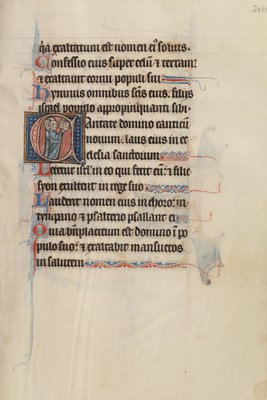 q̃a exaltatum est nomen ei⁹ solius.
Confessio eius super celũ ⁊ terram:
⁊ exaltauit cornu populi sui
Hymnus omnibus sc̃is eius. filijs
israel populo appropinquanti sibi.
Cantate domino canticũ
nouum. laus eius in ec
clesia sanctorum
Letetur isrł in eo qui fecit eũ: ⁊ filie
syon exultent in rege suo
Laudent nomen eius in choro: in
tympano ⁊ psalterio psallant ei
Quia bn̄placitum est domino ĩ po
pulo suo: ⁊ exaltabit mansuetos
in salutem